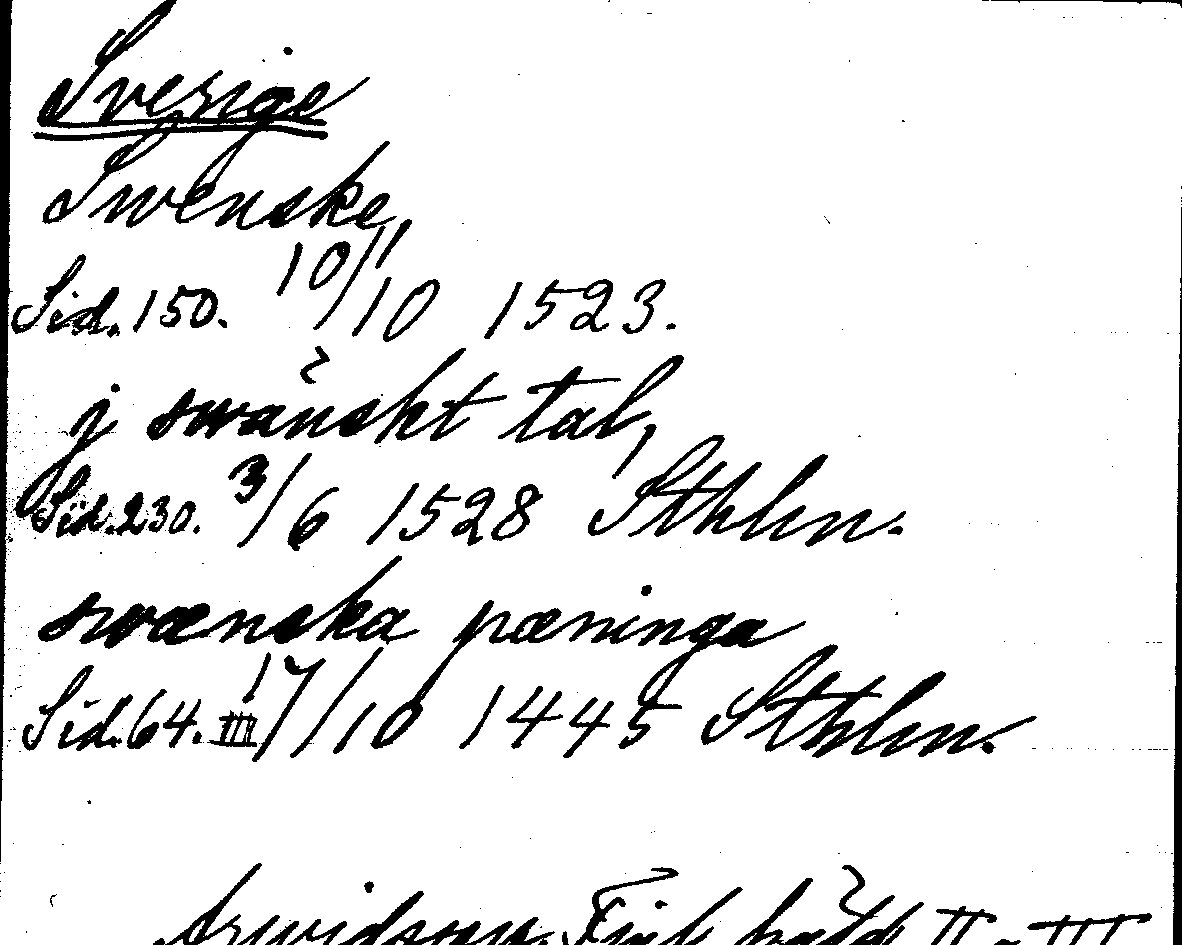 Sverige
Swenske,
Sid. 150. 10/10 1523.
j swänskt tal,
Sid. 230. 3/6 1528 Sthlm.
swænska pæninga
Sid. 64. III 17/10 1445 Sthlm.
Arwidsson. II o III